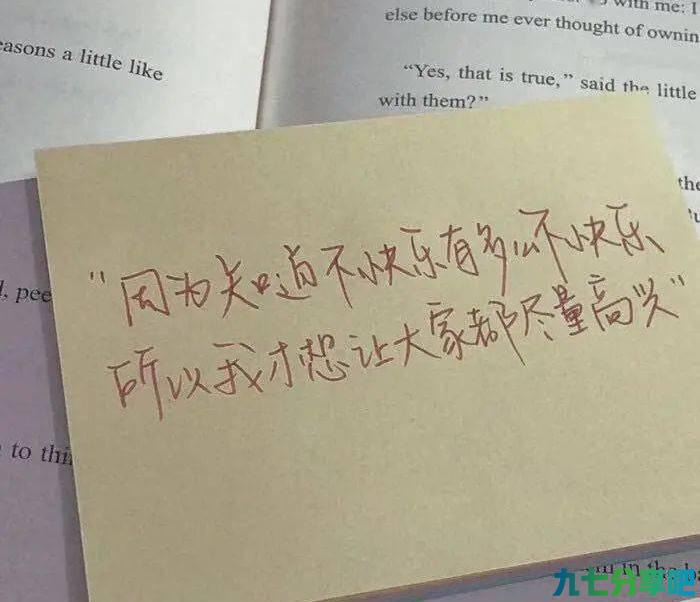 with me: I
else before me ever thought of ownin
easons a little like
"Yes, that is true," said the little
with them?"
the
"因为知道不快乐有多么不快乐
pee
所以我才想让大家都尽量高兴"
to thin
in the
九七分享吧